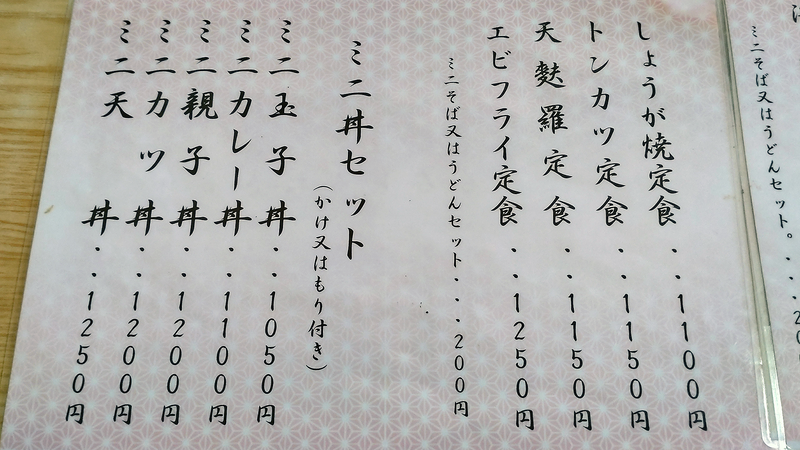 ミニそば又はうどんセット。・・・20
しょうが焼定食・・1100円
トンカツ定食・・1150円
天麩羅定食・・1150円
エビフライ定食・・1250円
ミニそば又はうどんセット・・・200円
ミニ丼セット
(かけ又はもり付き)
ミニ玉子丼・・1050円
ミニカレー丼・・1100円
ミニ親子丼・・1200円
ミニカツ丼・・1200円
ミニ天丼・・1250円